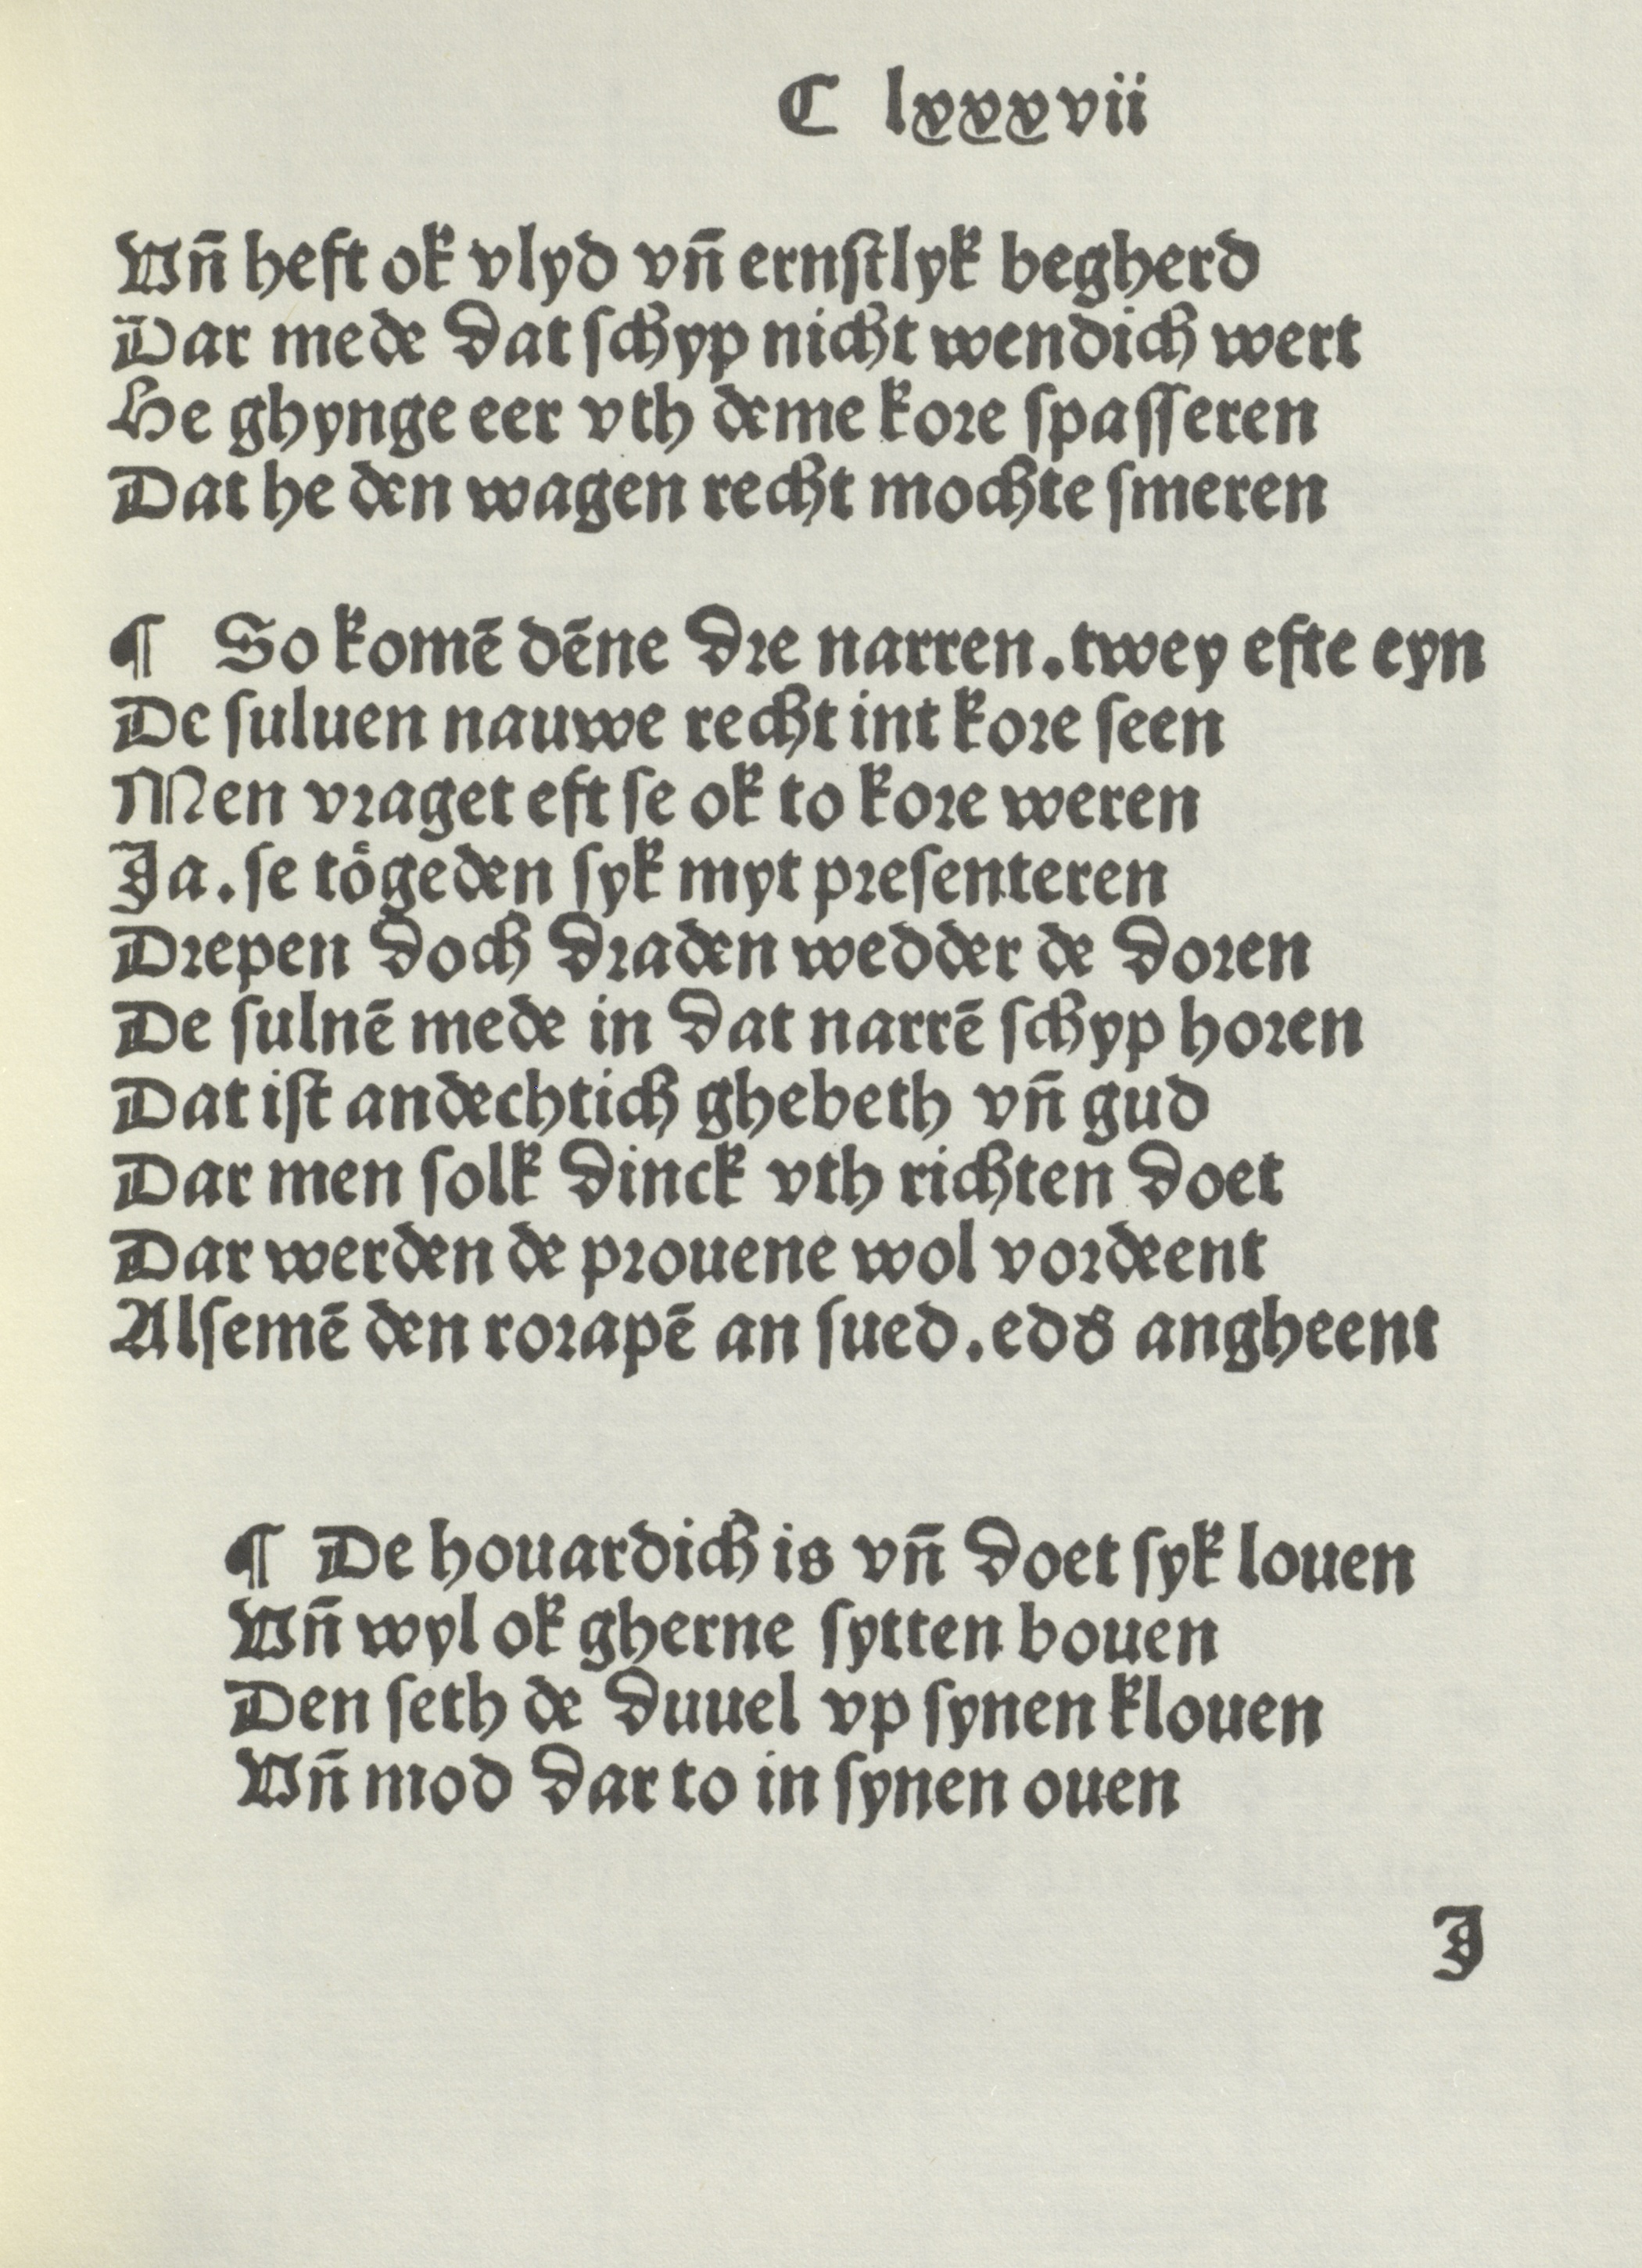 C lxxxvii
Vn̄ heft ok vlyd vn̄ ernſtlyk begherd
Dar mede dat ſchyp nicht wendich wert
He ghynge eer vth deme kore ſpaſſeren
Dat he den wagen recht mochte ſmeren
¶ So komē dēne dre narren.twey efte eyn
De ſuluen nauwe recht int kore ſeen
Men vraget eft ſe ok to kore weren
Ja.ſe toͤgeden ſyk myt preſenteren
Drepen doch draden wedder de doren
De ſulnē mede in dat narrē ſchyp horen
Dat iſt andechtich ghebeth vn̄ gud
Dar men ſolk dinck vth richten doet
Dar werden de prouene wol vordeent
Alſemē den rorapē an ſued.edꝭ angheent
¶ De houardich is vn̄ doet ſyk louen
Vn̄ wyl ok gherne ſytten bouen
Den ſeth de duuel vp ſynen klouen
Vn̄ mod dar to in ſynen ouen
J